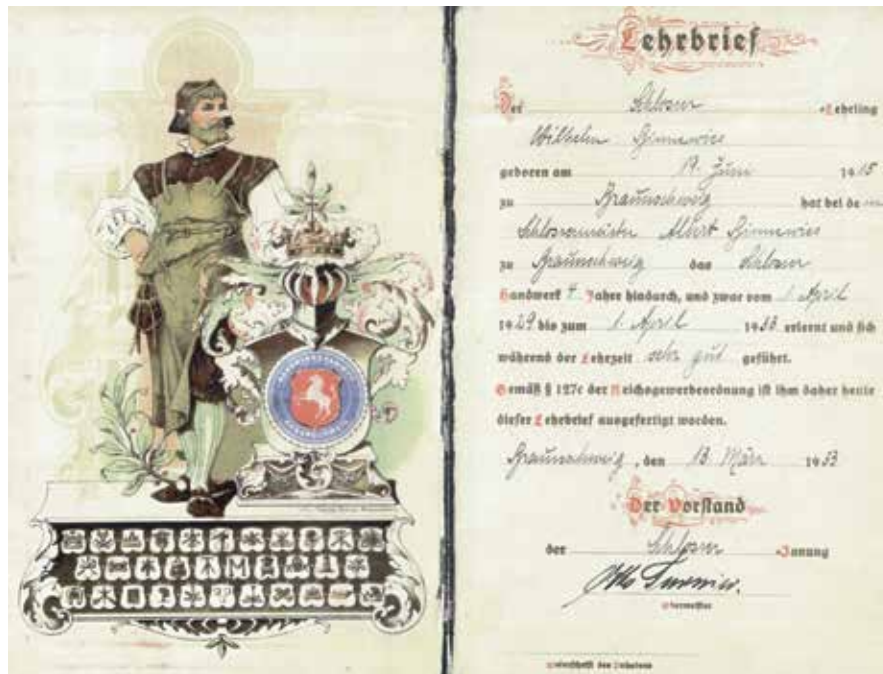 Lehrbrief
Der Schlosser -Lehrling
Wilhelm Binnewies
geboren am 19. Juni 1915
zu Braunschweig hat bei dem
Schlossermeister Albert Binnewies
zu Braunschweig das Schlosser
Handwerk 4 Jahre hindurch, und zwar vom 1. April
1929 bis zum 1. April 1933 erlernt und sich
während der Lehrzeit sehr gut geführt.
Gemäß § 127c der Reichsgewerbeordnung ist ihm daher heute
dieser Lehrbrief ausgefertigt worden.
Braunschweig, den 13. März 1933
Der Vorstand
der Schlosser -Innung
Obermeister